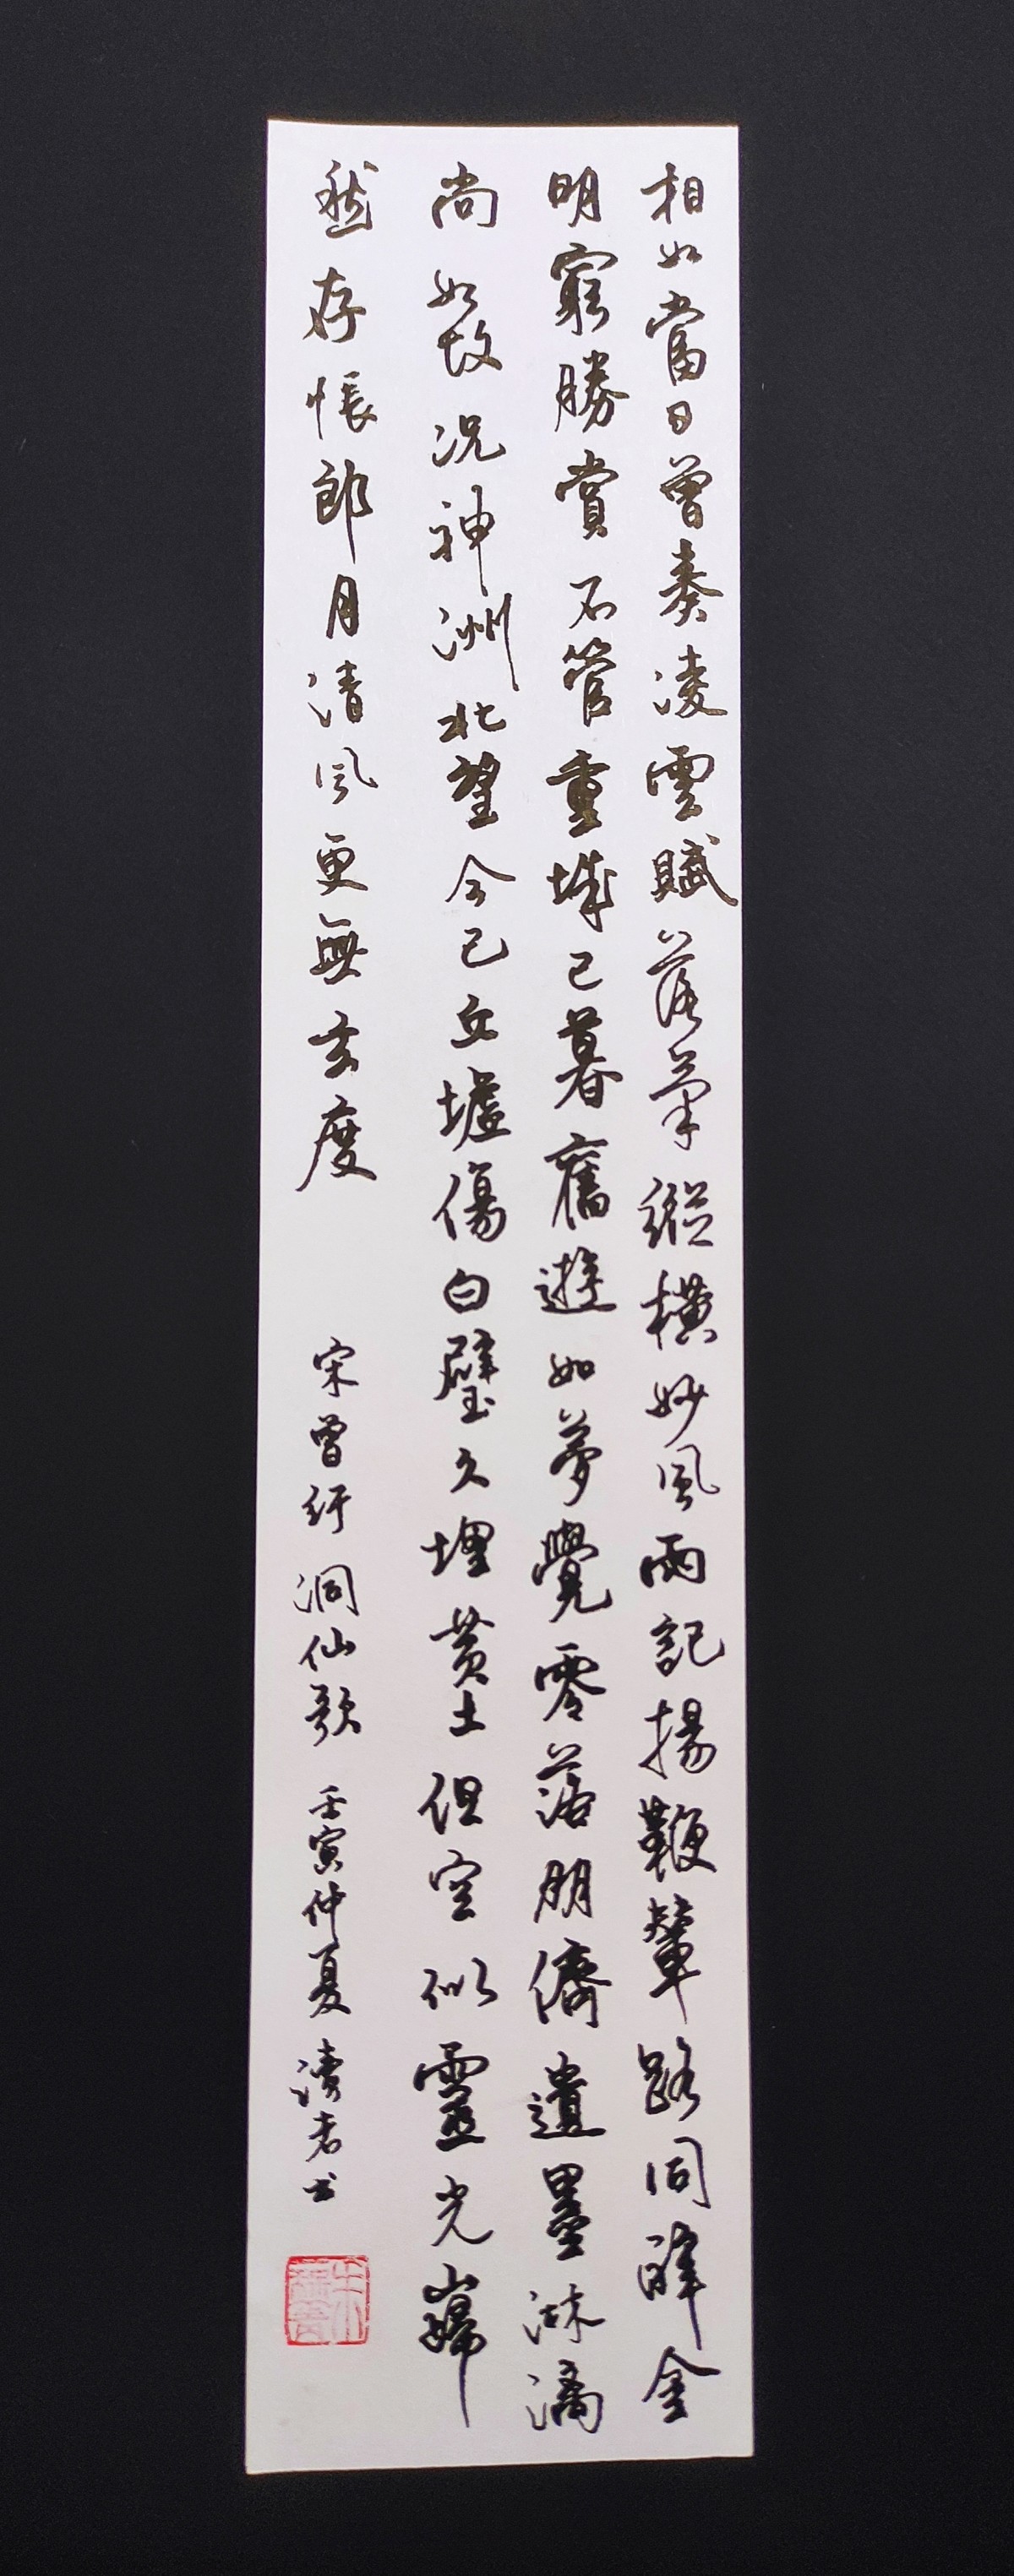 相如當日曾奏淩雲賦落筆縱橫妙風雨記揚鞭輦路同醉金
明窮勝賞不管重城已暮舊遊如夢覺零落朋儕遺墨淋漓
尚如故況神洲北望今已丘墟傷白璧久埋黄土但空似靈光巋
然存悵郎月清風更無玄度
宋曾紆洞仙歌 壬寅仲夏 書